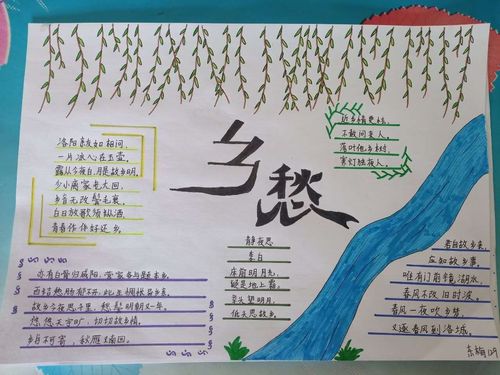 乡愁
洛阳亲友如相问，
一片冰心在玉壶。
露从今夜白，月是故乡明。
少小离家老大回，
乡音无改鬓毛衰。
白日放歌须纵酒，
青春作伴好还乡。
近乡情更怯，
不敢问来人。
落叶他乡树，
寒灯独夜人。
静夜思
李白
床前明月光，
疑是地上霜。
举头望明月，
低头思故乡。
君自故乡来，
应知故乡事。
唯有门前镜湖水，
春风不改旧时波。
春风一夜吹乡梦，
又逐春风到洛城。
亦有白骨归咸阳，营家各与题本乡。
百结愁肠郁不开，此生惆怅异乡
故乡今夜思千里，愁鬓明朝又一年。
悠悠天宇旷，切切故乡情。
乡自不可寄，秋雁南回。